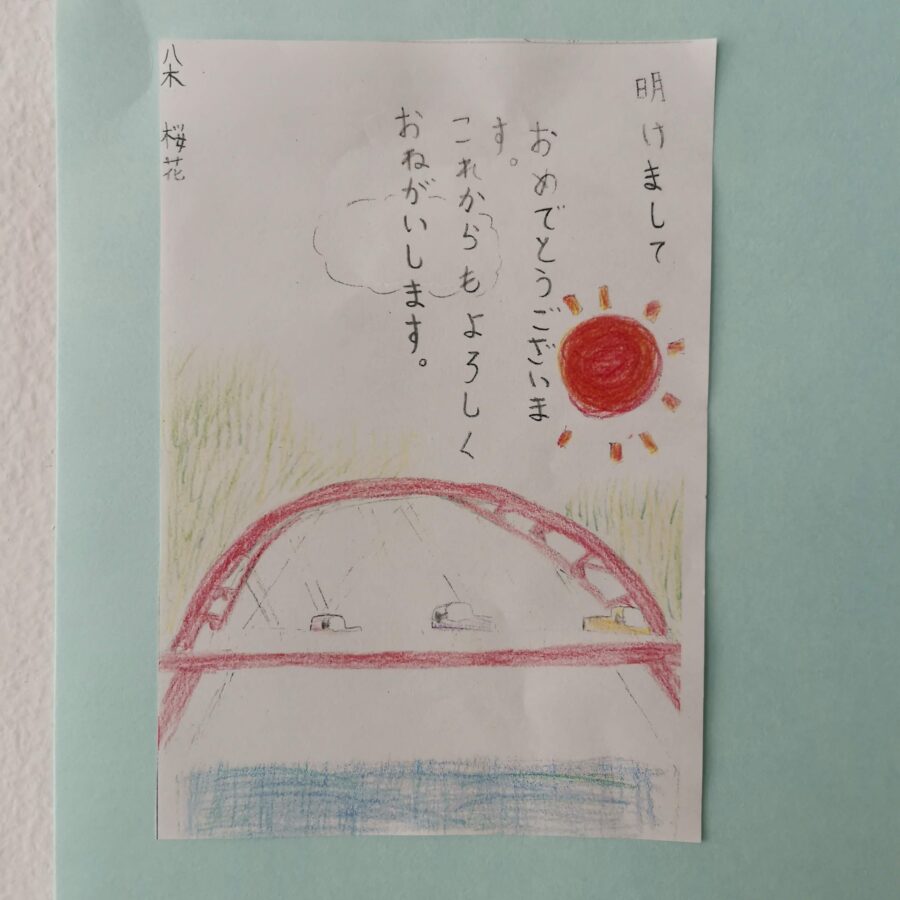 明けまして
おめでとうございま
す。
これからもよろしく
おねがいします。
八木 桜花